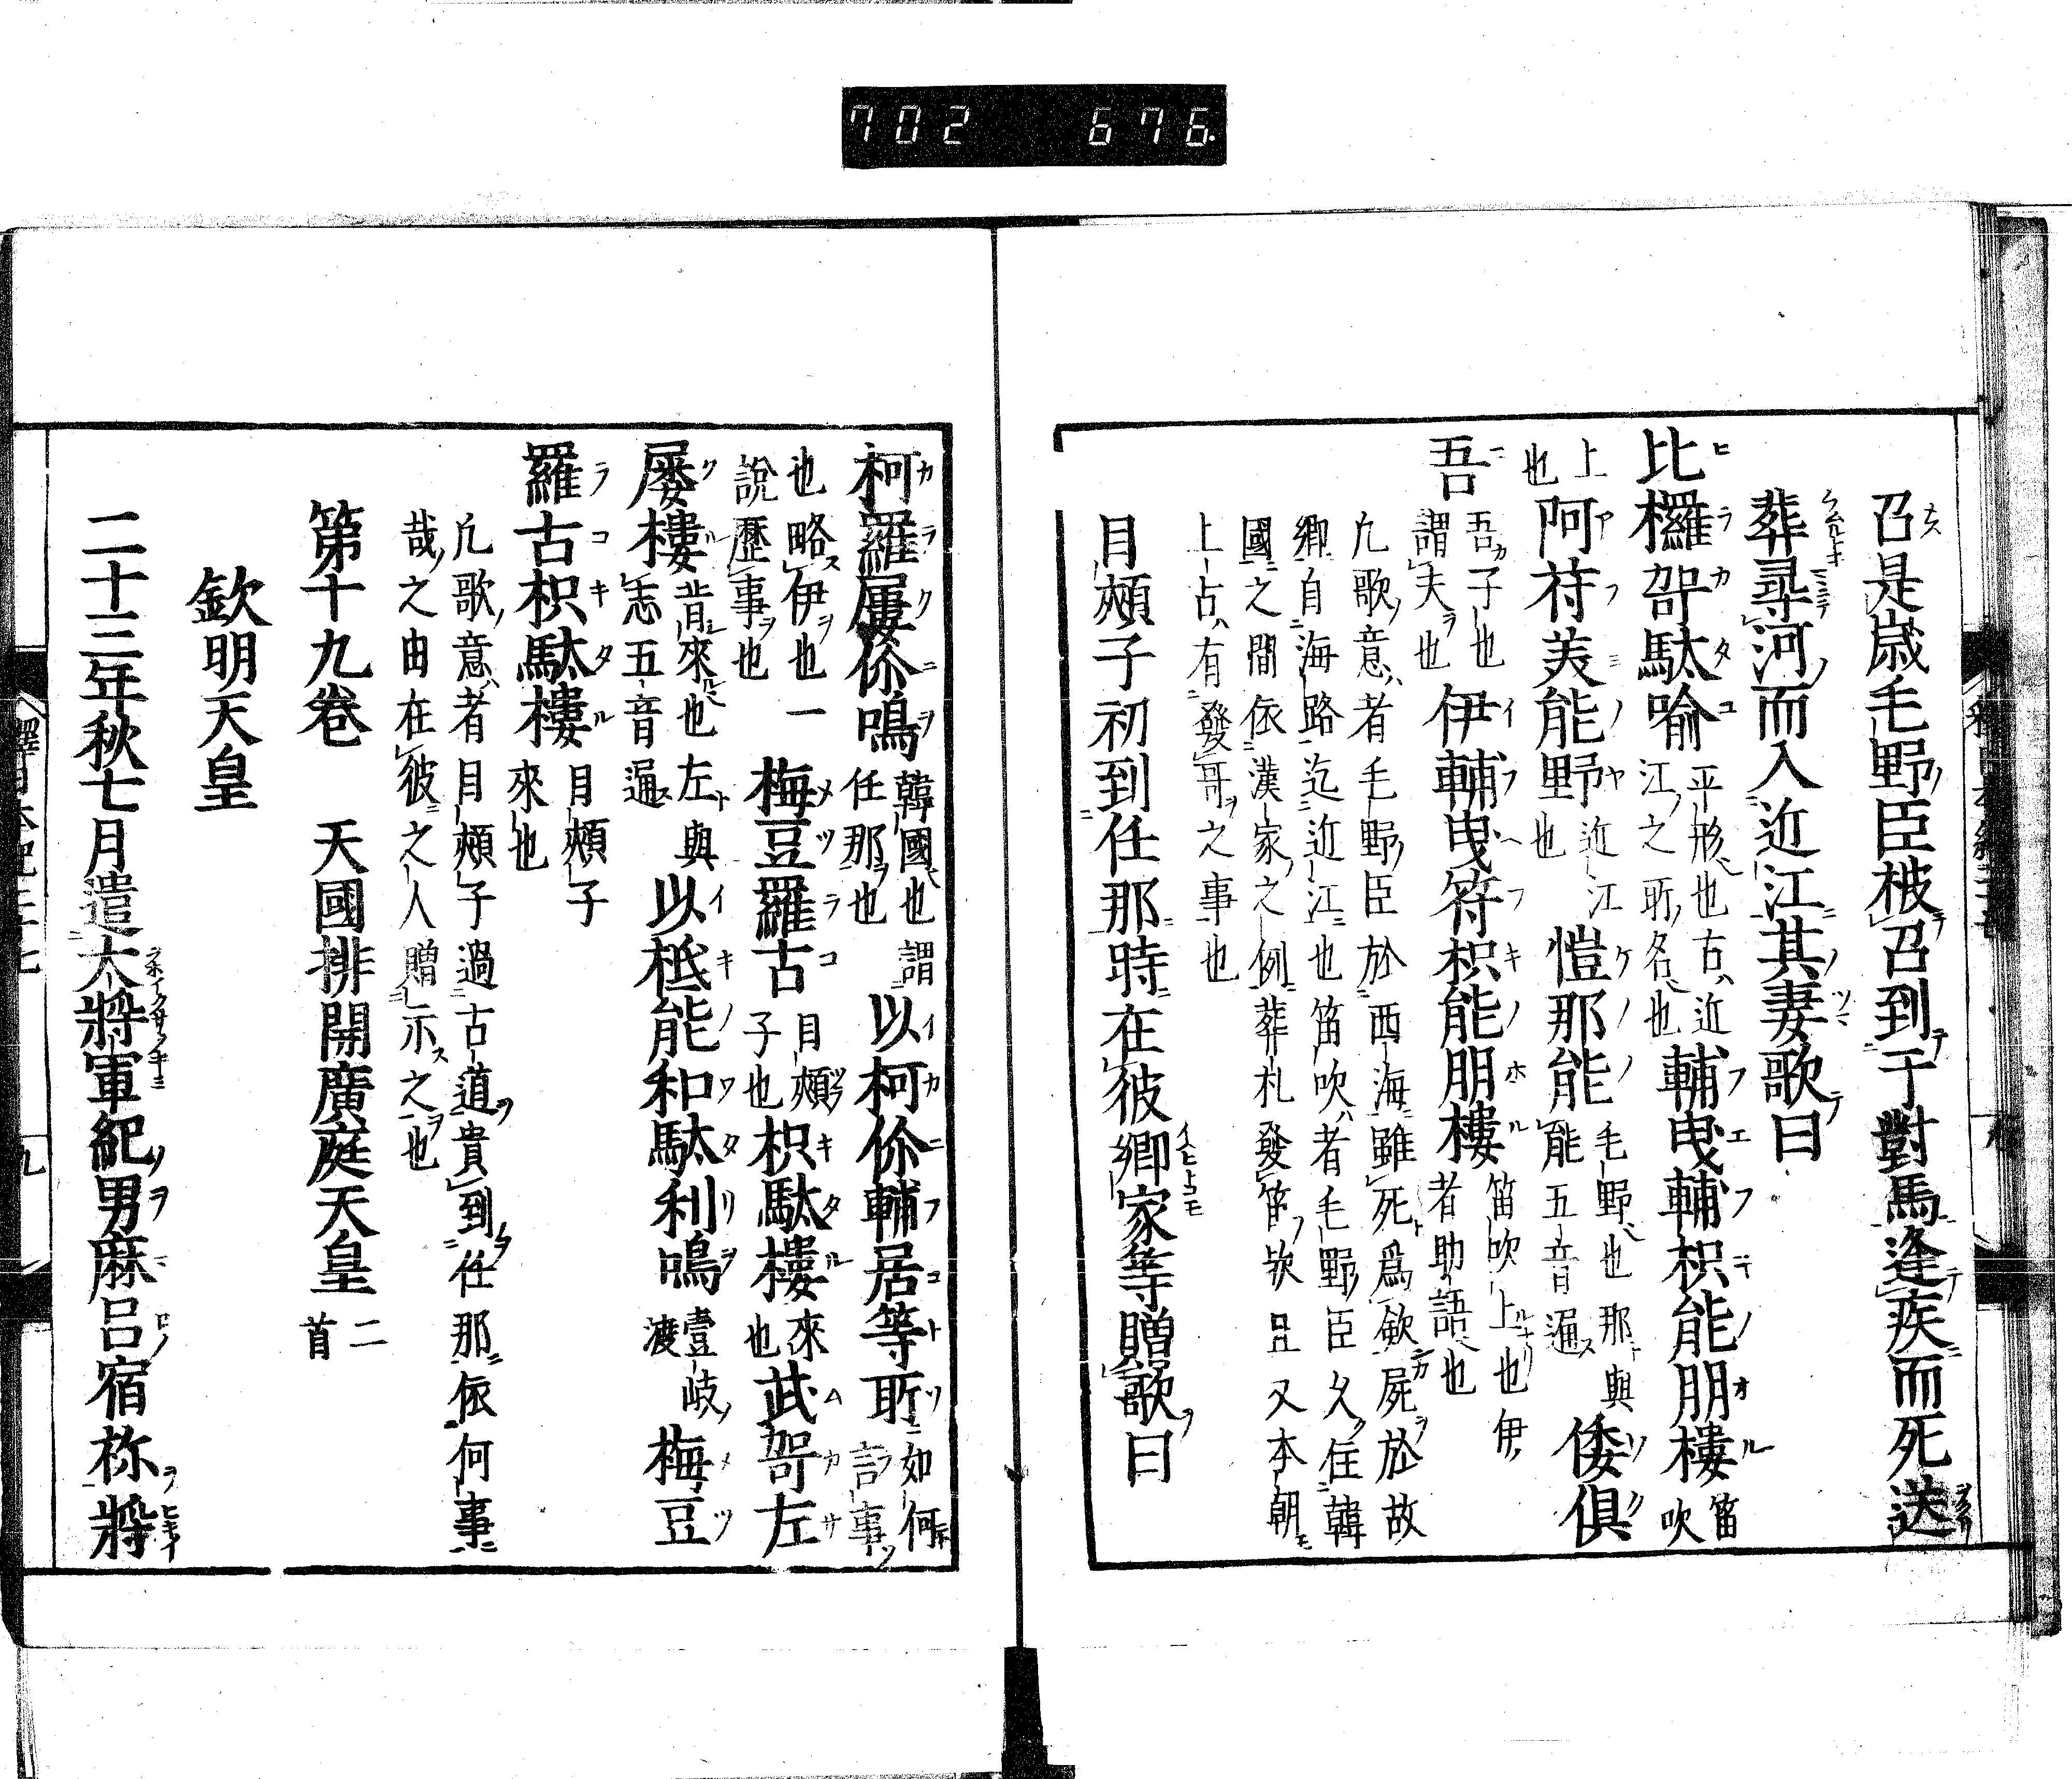 702 676
召是歳毛野臣被召到于對馬逢疾而死送
葬尋河而入近江其妻歌曰
比攞哿駄喩平形也古近江之所名也輔曳輔枳能朋樓笛吹
上也阿符美能野近江也愷那能毛野也那與能五音通倭倶
吾吾子也謂夫也伊輔曳符枳能朋樓笛吹上也伊者助語也
凡歌意者毛野臣於西海雖死爲斂屍於故
郷自海路迄近江也笛吹者毛野臣久住韓
國之間依漢家之例葬札發笛欤且又本朝
上古有發哥之事也
目頰子初到任那時在彼郷家等贈歌曰
柯羅屨儞鳴韓國也任那也謂以柯儞輔居等所如何言事
也略伊也一説歴事也梅豆羅古目頰子也枳駄樓來也武哿左
屨樓背來也左與志五音通以柢能和駄利鳴壹岐渡梅豆
羅古枳駄樓目頰子來也
凡歌意者目頰子過古道貴到任那依何事
哉之由在彼之人贈示之也
第十九卷 天國排開廣庭天皇二首
欽明天皇
二十三年秋七月遣大將軍紀男麻呂宿祢將